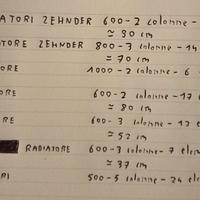 ATORI ZEHNDER 600-2 colonne -
≃ 90 cm
ATORE ZEHNDER 800-3 colonne - 14
≃ 70 cm
ORE 1000-2 colonne - 6
ORE 600-2 colonne - 17
≃ 80 cm
RE 600-3 colonne - 12
≃ 52 cm
RADIATORE 600-3 colonne - 7 elem
≃ 37 cm
RI 500-5 colonne - 24 ele